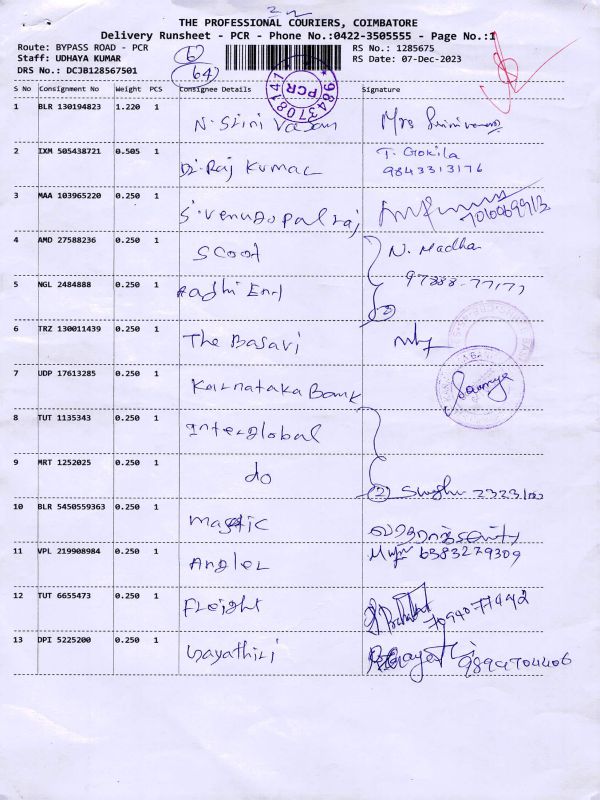 THE PROFESSIONAL COURIERS, COIMBATORE
Delivery Runsheet - PCR - Phone No.:0422-3505555 - Page No.:1
Route: BYPASS ROAD - PCR
RS No.: 1285675
Staff: UDHAYA KUMAR
RS Date: 07-Dec-2023
DRS No.: DCJB128567501
64
PCR
S No Consignment No Weight PCS Consignee Details Signature
1 BLR 130194823 1.220 1 N. Srini Vasan Mrs Srinivasan
2 IXM 505438721 0.505 1 Dr. Raj Kumar T. Gokila
9843313176
3 MAA 103965220 0.250 1 S. Venugopalraj
4 AMD 27588236 0.250 1 Scoot N. Madha
97888-77177
5 NGL 2484888 0.250 1 Aadhi Ent
6 TRZ 130011439 0.250 1 The Basavi
7 UDP 17613285 0.250 1 Karnataka Bank Sowmya
8 TUT 1135343 0.250 1 Interglobal
9 MRT 1252025 0.250 1 do 2
10 BLR 5450559363 0.250 1 Magtic
11 VPL 219908984 0.250 1 Angler 6383279309
12 TUT 6655473 0.250 1 Freight 7094077492
13 DPI 5225200 0.250 1 Gayathiri 9894704406